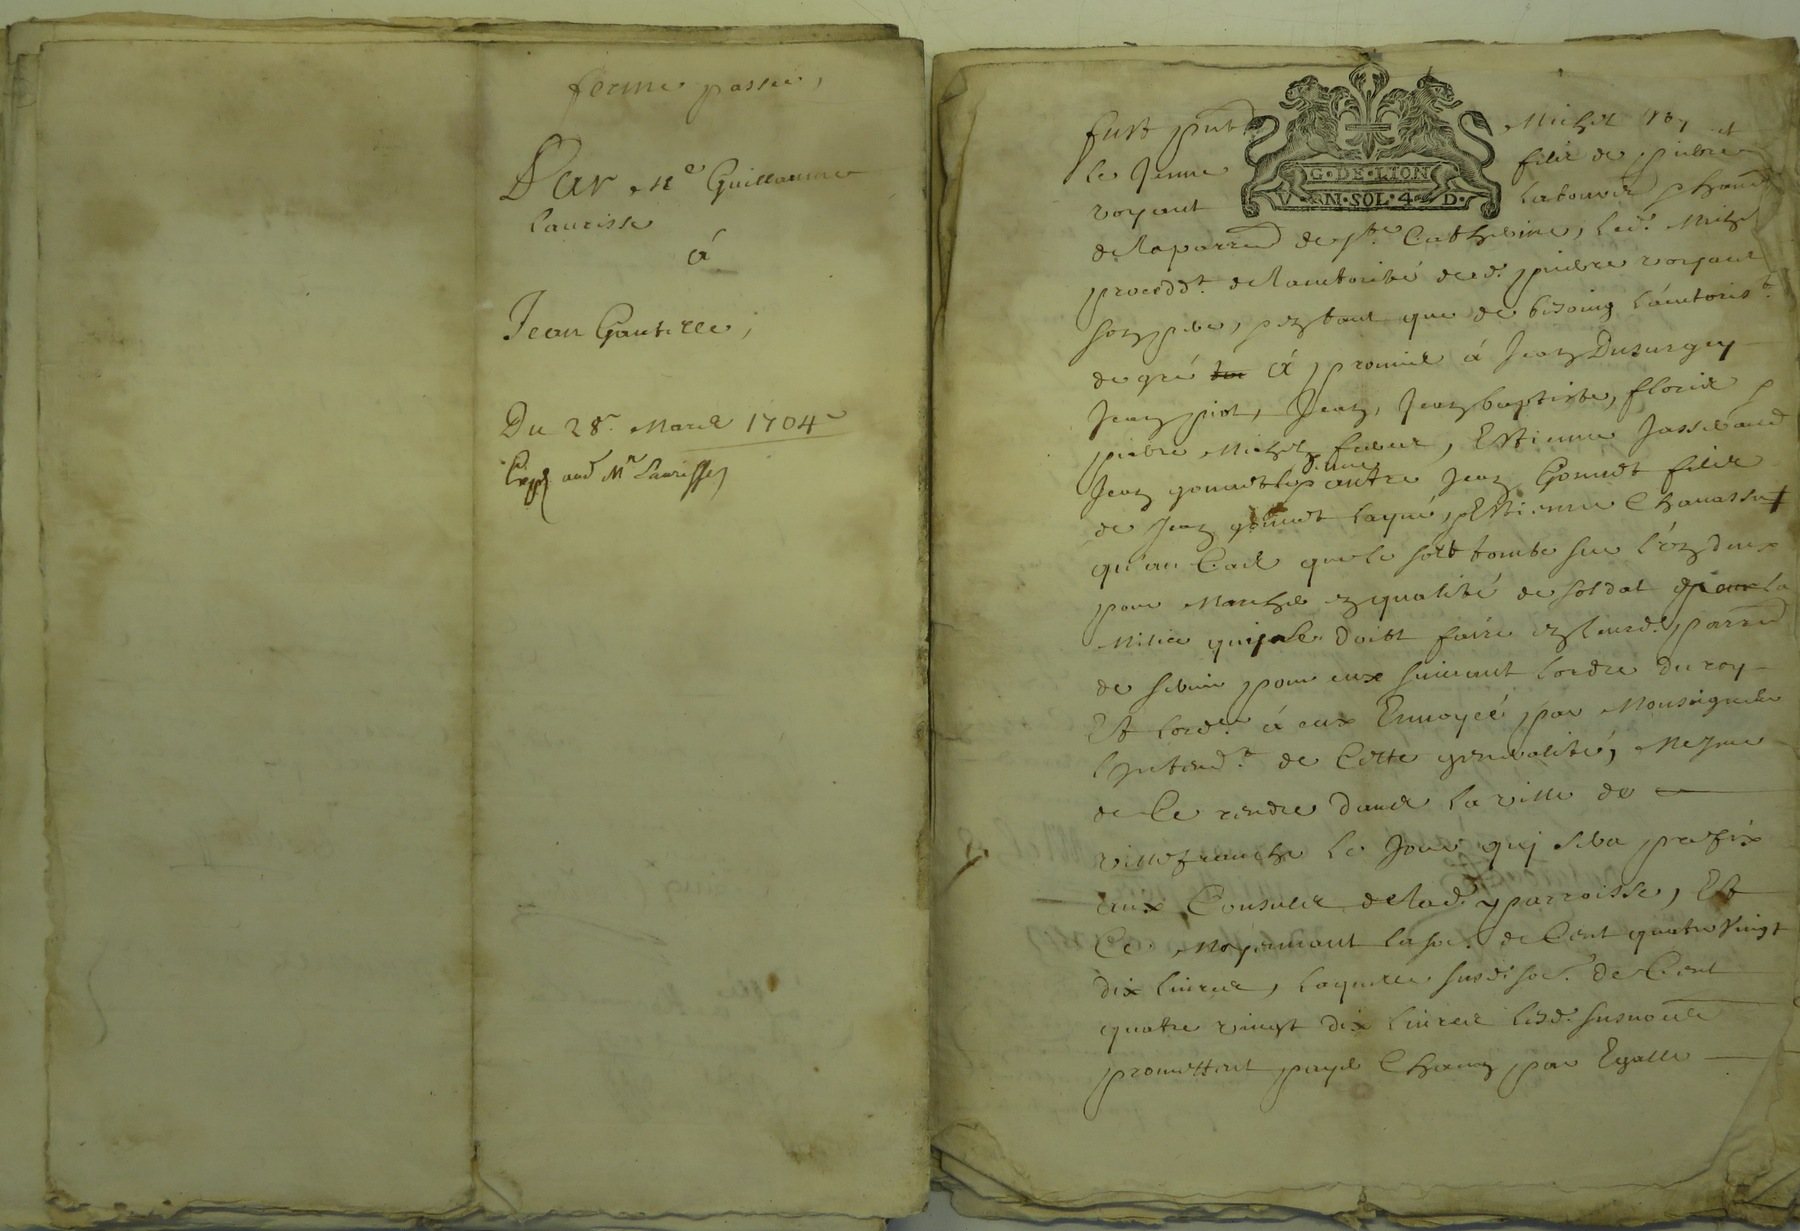 ferme passée,
Par Me Guillaume
Laurisse
à
Jean Gantille,
Du 28e. Mars 1704
Expé aud Mr Laurisse
G·DE·LION
V·N·SOL·4·D·
fust pnt Michel
le Jeune filz de pierre
voyant
de la parr de ste Catherine, led. Michel
proceddt. de lautorité dud. pierre voyant
son pere, en tant que de besoing lautorist.
de gré à promis à Jean Dusurgey
Jean piot, Jean, Jean baptiste, floris
pierre Michel faveur, Estienne Jasseraud
Jean gonnet le jeune autre Jean Gonnet filz
de Jean gonnet layné, Estienne Chavassu
qu'au Cas que le sort tombe sur l'un deux
pour Marcher en qualité de soldat de la
Milice qui se doibt faire en leurd. parr
de servir pour eux suivant lordre du roy
Et lord. à eux Envoyée par Monseigneur
l'Intend.t de Cette generalité, Mesme
de Ce rendre dans la ville de
villefranche le Jour qui sera prefix
aux Consulz de lad. parroisse, Et
Ce Moyennant la so.e de Cent quatre vingt
dix livres, laquelle susd. so.e de Cent
quatre vingt dix livres lesd. susnomés
promettent payer Chacun par Egalle